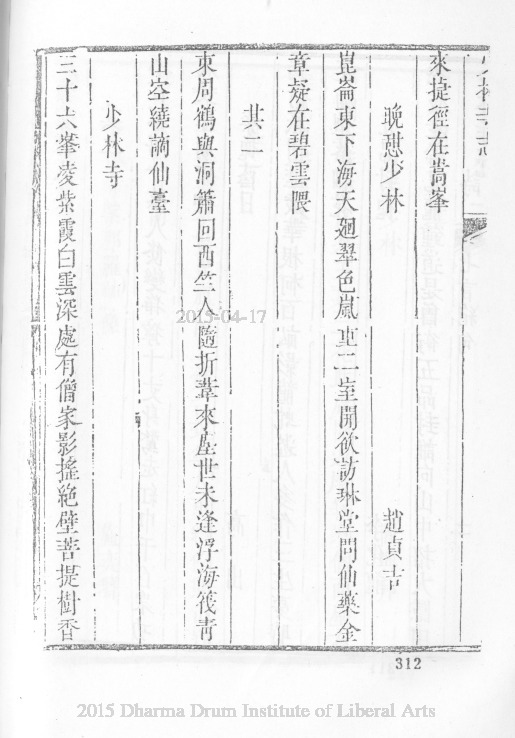 少林寺志
來捷徑在嵩峯
晚憇少林
趙貞吉
崑崙東下海天廻翠色嵐重二室開欲訪琳堂問仙藥金
章疑在碧雲隈
其二
東周鶴與洞簫回西竺人隨折葦來塵世未逢浮海筏青
山空繞謫仙臺
少林寺
三十六峯凌紫霞白雲深處有僧家影搖絶壁菩提樹香
312
2015-04-17
2015 Dharma Drum Institute of Liberal Arts